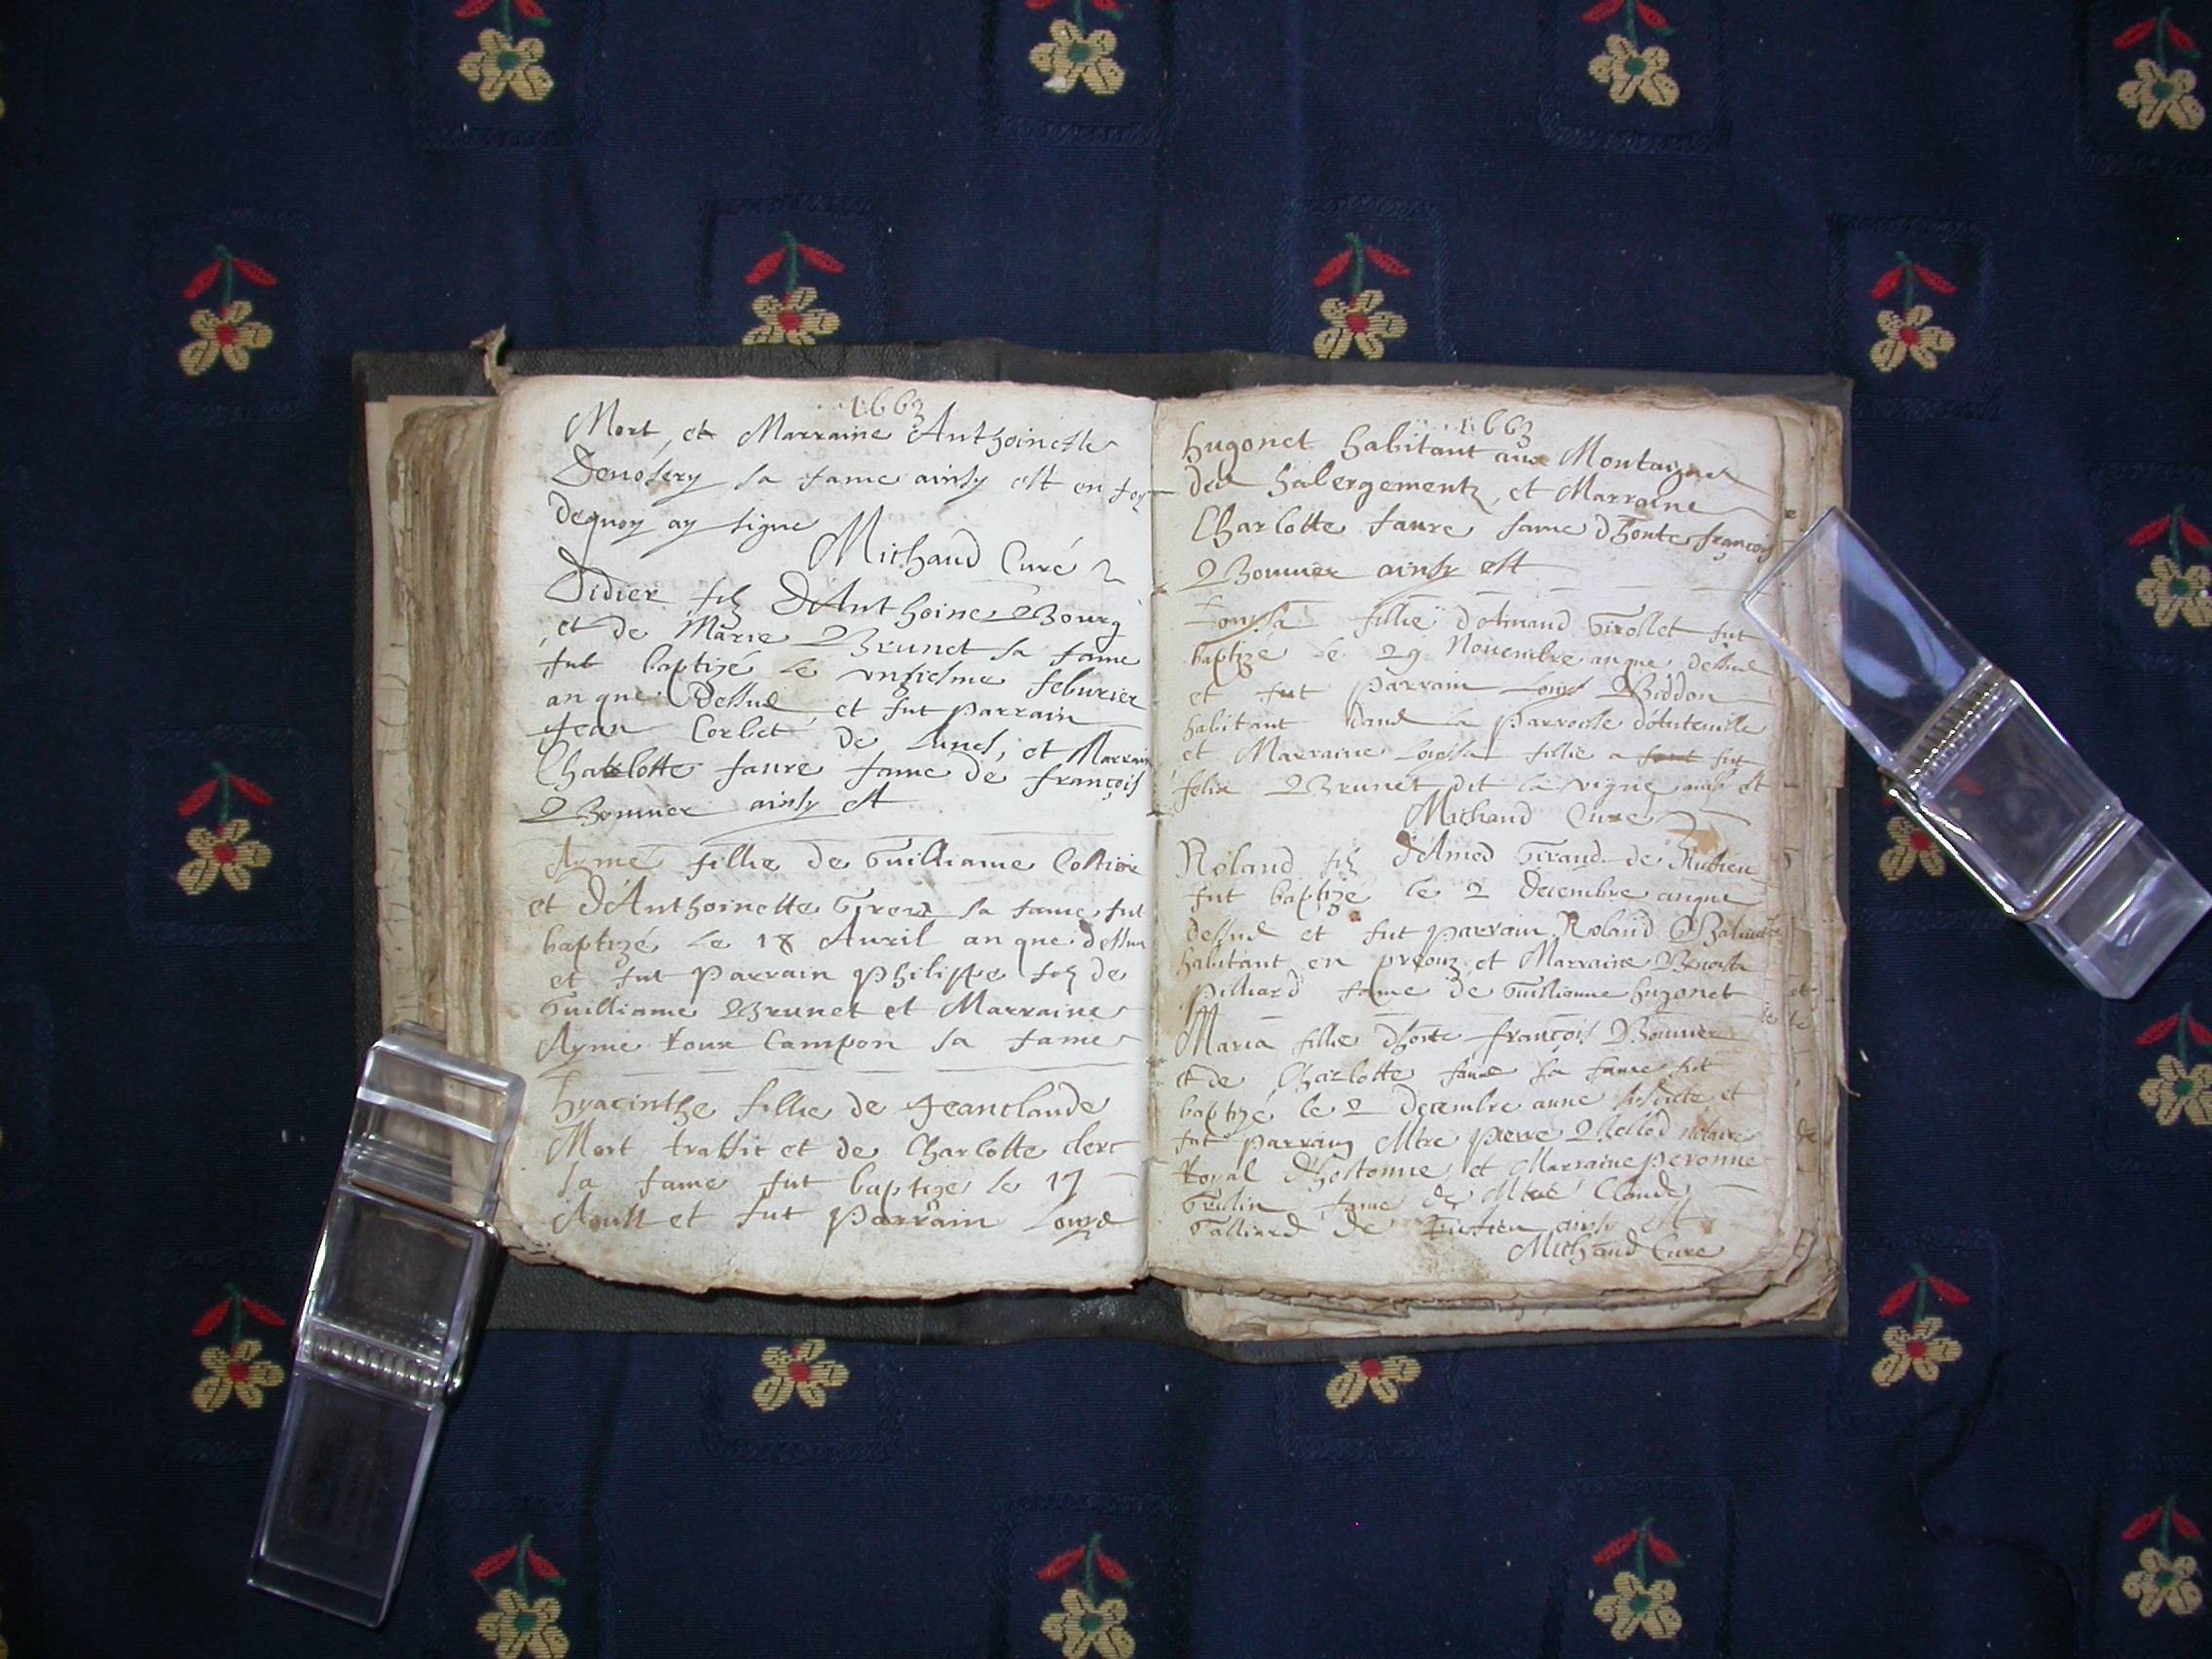 1663
Mort, et Marraine Anthoinette
Denosery sa fame ainsy est en foy
dequoy ay signe
Michaud Curé
Didier filz D'Anthoine Bourg
et de Marie Brunet sa fame
fut baptizé le unziesme feburier
an que dessus et fut parrain
Jean Corbet de Lunes, et Marraine
Charlotte faure fame de françois
Bonnier ainsy est
Aymé fillie de Guilliame
et d'Anthoinette sa fame fut
baptizé le 18 Auril an que dessus
et fut Parrain Philippe filz de
Guilliame Brunet et Marraine
Ayme Roux Campon sa fame
hyacinthe fillie de Jeanclaude
Mort traffit et de Charlotte clerc
sa fame fut baptizé le 17
Aoust et fut Parrain Louys
1663
hugonet habitant aux Montagnes
des halbergementz, et Marraine
Charlotte faure fame dhonte françois
Bonnier ainsy est
Louysa fillie d'Amand Girollet fut
baptizé le 29 Nouembre an que dessus
et fut parrain Louys Biddon
habitant dans la parroche
et Marraine Loysa fillie a fut
felix Brunet dit la vigne ainsy est
Michaud Curé
Roland filz d'Amed Giraud de
fut baptizé le 2 decembre anque
dessus et fut parrain Roland
habitant en preouz et Marraine Benoiste
pilliard fame de Guilliame hugonet
Maria fillie dhonte françois Bonnier
et de Charlotte faure sa fame fut
baptizé le 2 decembre anne susdicte et
fut parrain Mtre pierre notaire
Royal dhostonne et Marraine peronne
fame de Mtre Claude
Galliard de ainsy est
Michaud Curé